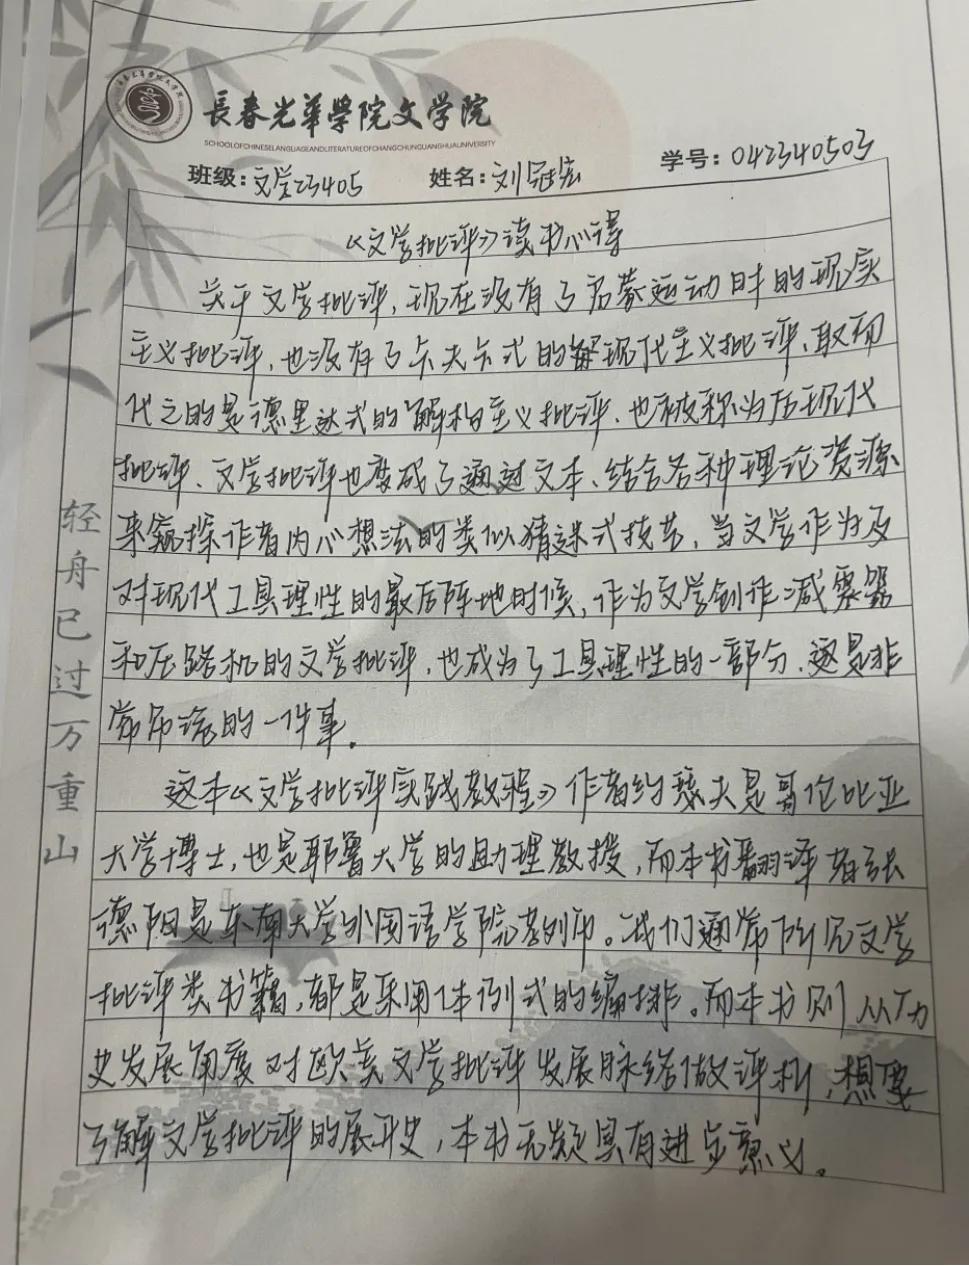 長春光華學院文学院
SCHOOLOFCHINESELANGUAGEANDLITERATUREOFCHANGCHUNGUANGHUAUNIVERSITY
班级:文学23405 姓名:刘冠宏 学号:042340503
《文学批评》读书心得
关于文学批评,现在没有了启蒙运动时的现实
主义批评,也没有了卢夫卡式的解现代主义批评、取而
代之的是德里达式的解构主义批评、也被称为后现代
批评、文学批评也变成了通过文本、结合各种理论资源
来窥探作者内心想法的类似猜迷式技艺,当文学作为反
对现代工具理性的最后阵地时候,作为文学创作减震器
和压路机的文学批评,也成为了工具理性的一部分、这是非
常吊诡的一件事.
这本《文学批评实践教程》作者约瑟夫是哥伦比亚
大学博士,也是耶鲁大学的助理教授,而本书翻译者张
德阳是东南大学外国语学院老师。我们通常所见文学
批评类书籍,都是采用体例式的编排。而本书则从历
史发展角度对欧美文学批评发展脉络做评析,想要
了解文学批评的展开史,本书无疑具有进步意义。
轻舟已过万重山